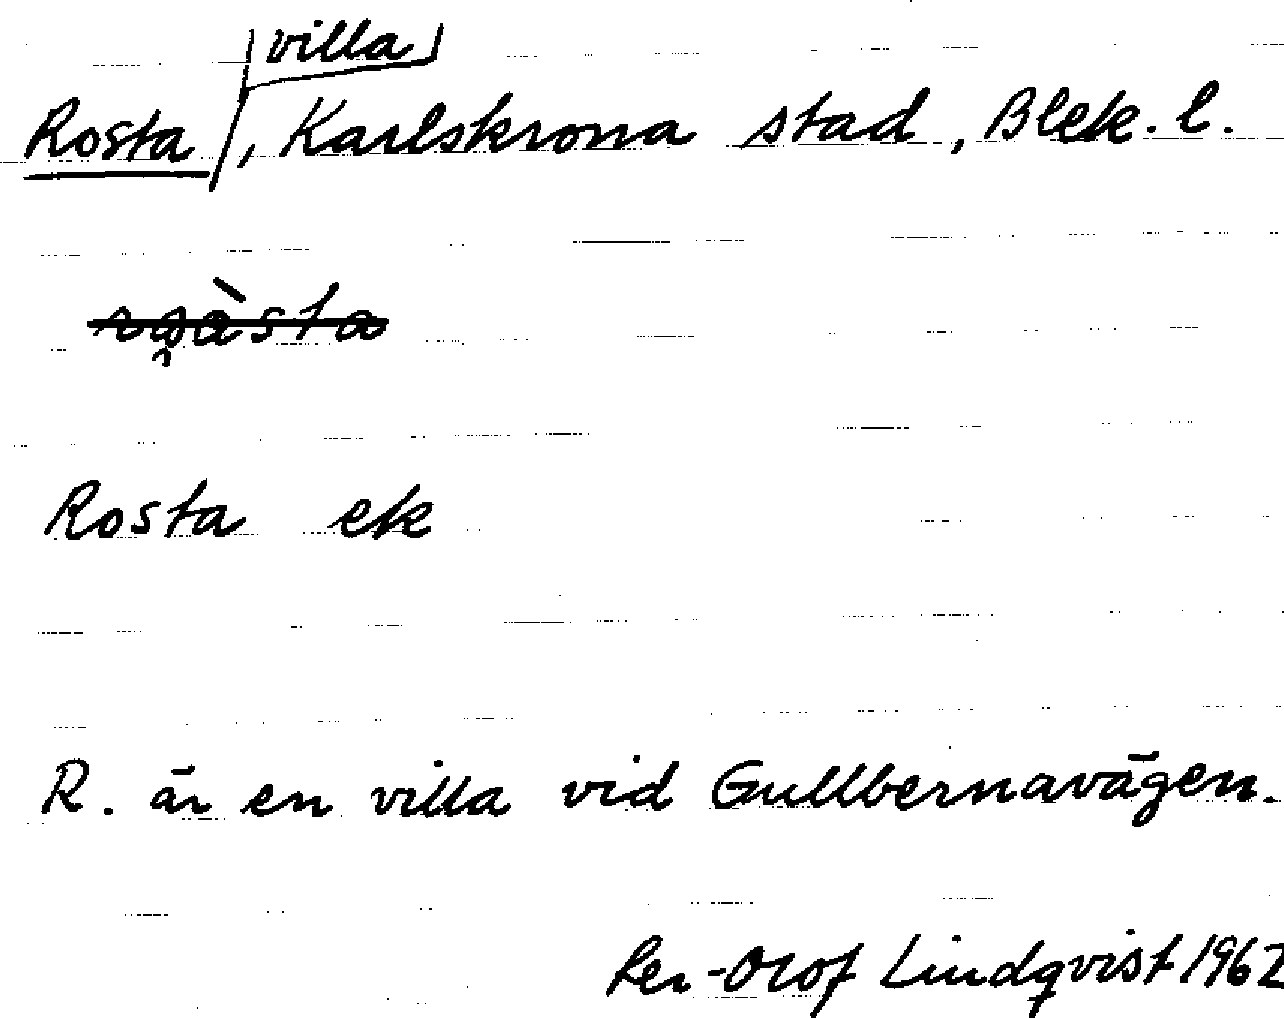 villa
Rosta, Karlskrona stad, Blek. l.
Rosta ek
R. är en villa vid Gullbernavägen.
Per-Olof Lindqvist 1962